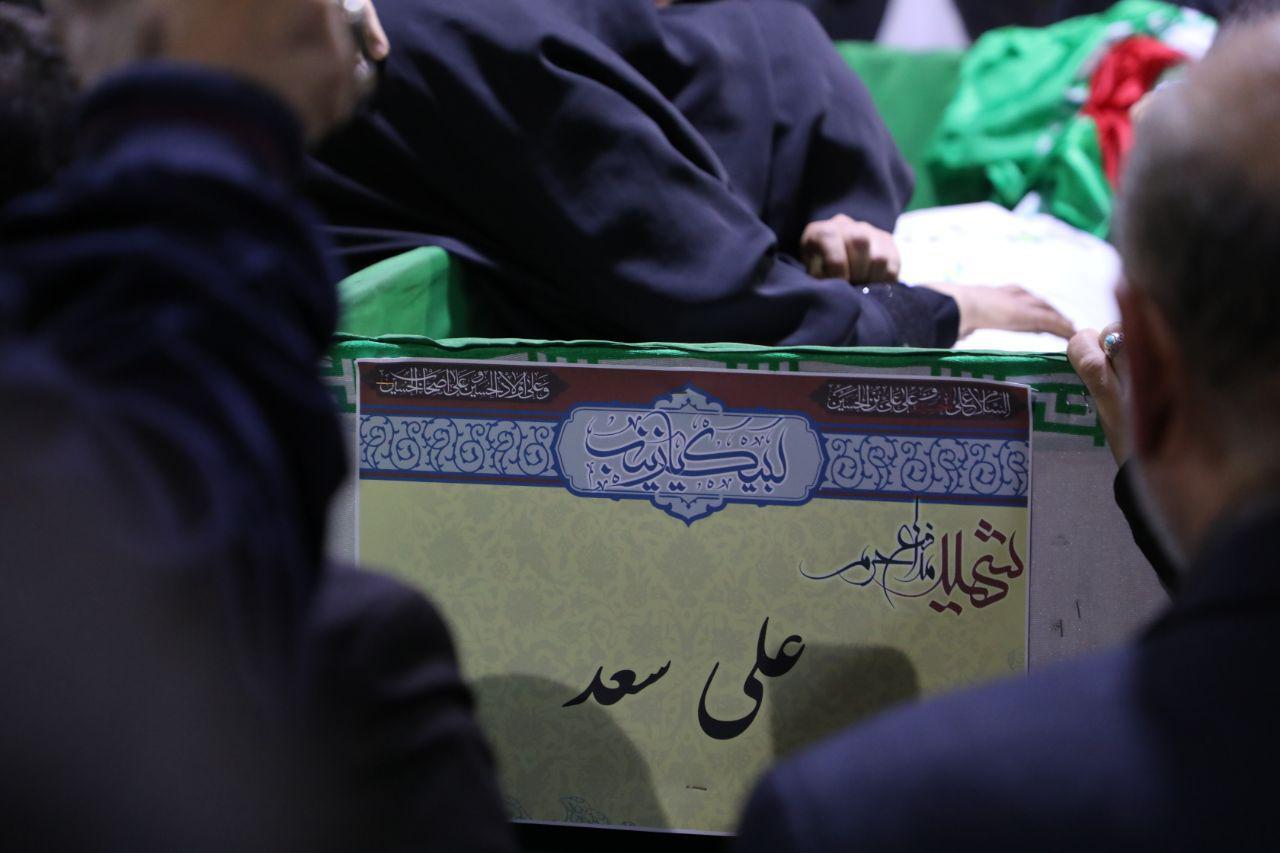 السلام علی و علی علی بن الحسین
و علی اولاد الحسین و علی اصحاب الحسین
لبیک یا زینب
شهید مدافع حرم
علی سعد